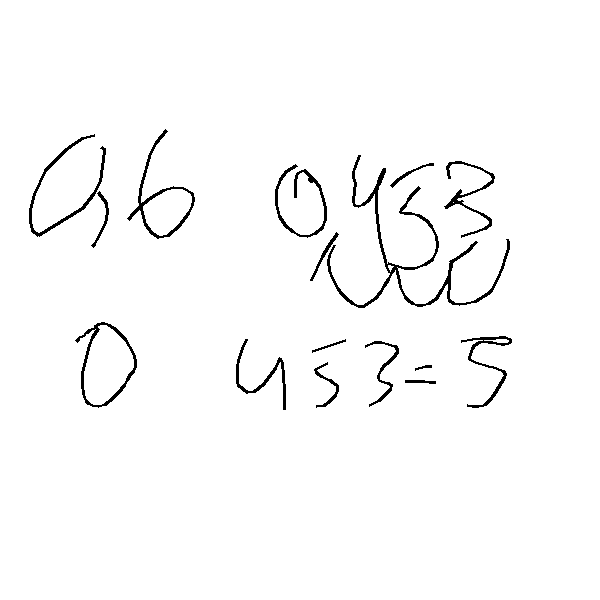 96 0.453
0 453=5